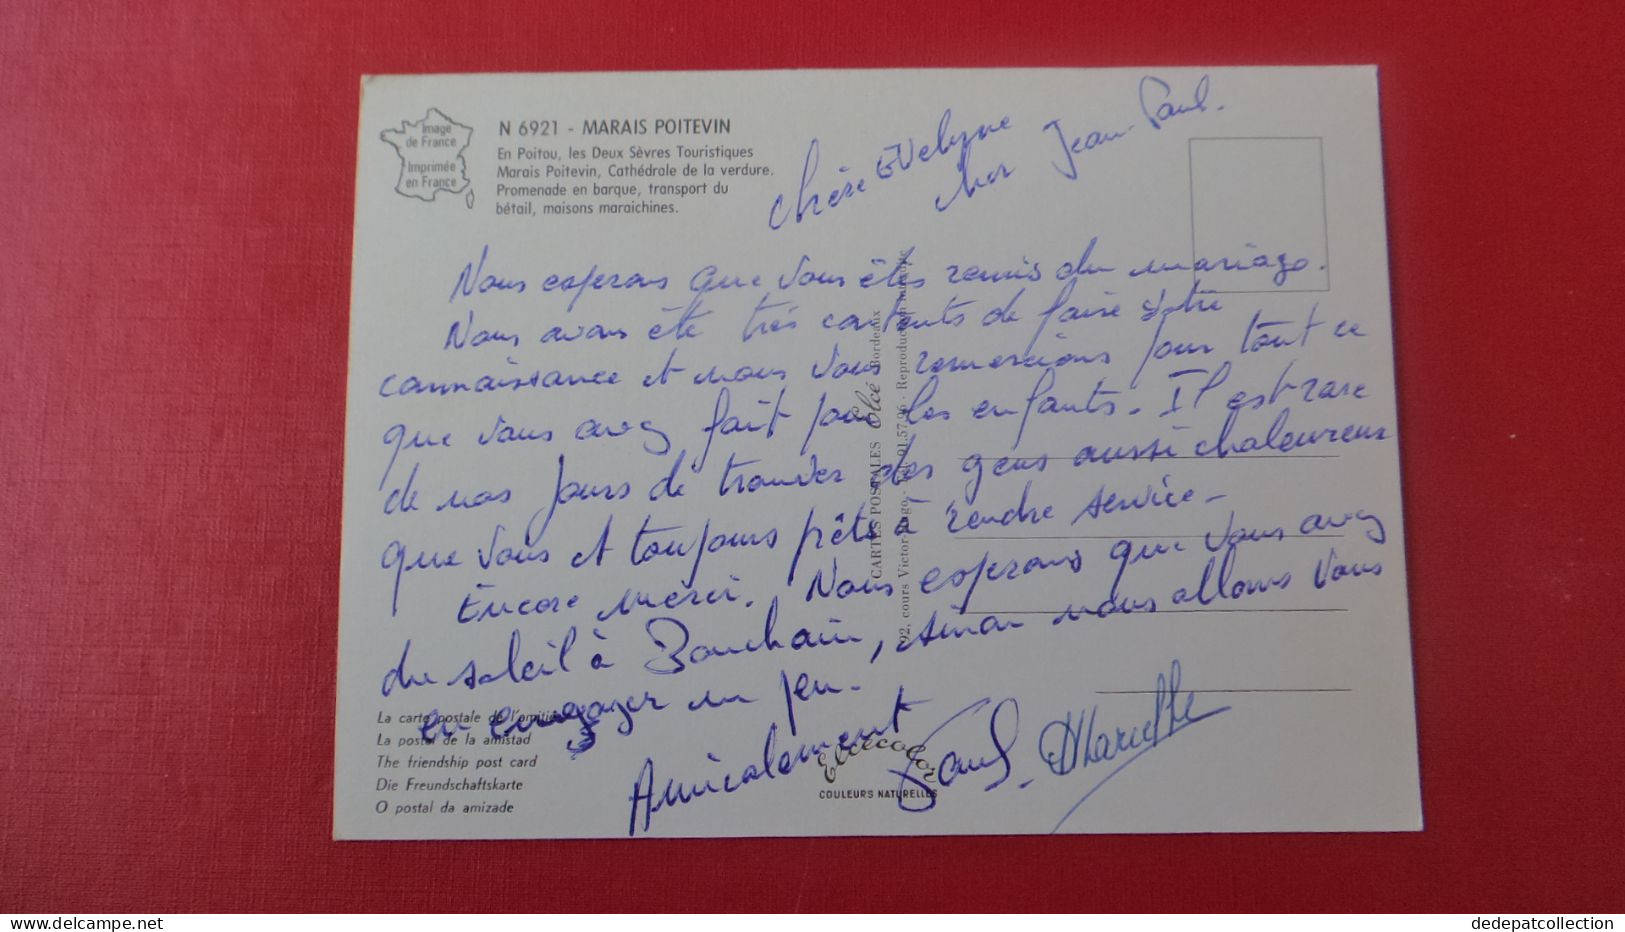 Image
de France
Imprimée
en France
N 6921 - MARAIS POITEVIN
En Poitou, les Deux Sèvres Touristiques
Marais Poitevin, Cathédrale de la verdure.
Promenade en barque, transport du
bétail, maisons maraichines.
Chère Evelyne
cher Jean-Paul.
Nous esperons que vous êtes remis du mariage.
Nous avons été très contents de faire votre
connaissance et nous vous remercions pour tout ce
que vous avez fait pour les enfants. Il est rare
de nos jours de trouver des gens aussi chaleureux
que vous et toujours prêts à rendre service -
Encore merci. Nous esperons que vous avez
du soleil à Bouchain, sinon nous allons vous
en engager un peu.
Amicalement
Paul
La carte postale de l'amitié
La postal de la amistad
The friendship post card
Die Freundschaftskarte
O postal da amizade
CARTES POSTALES Elcé Bordeaux
92, cours Victor-Hugo - 91.57.96 - Reproduction interdite
Elcécolor
COULEURS NATURELLES
dedepatcollection